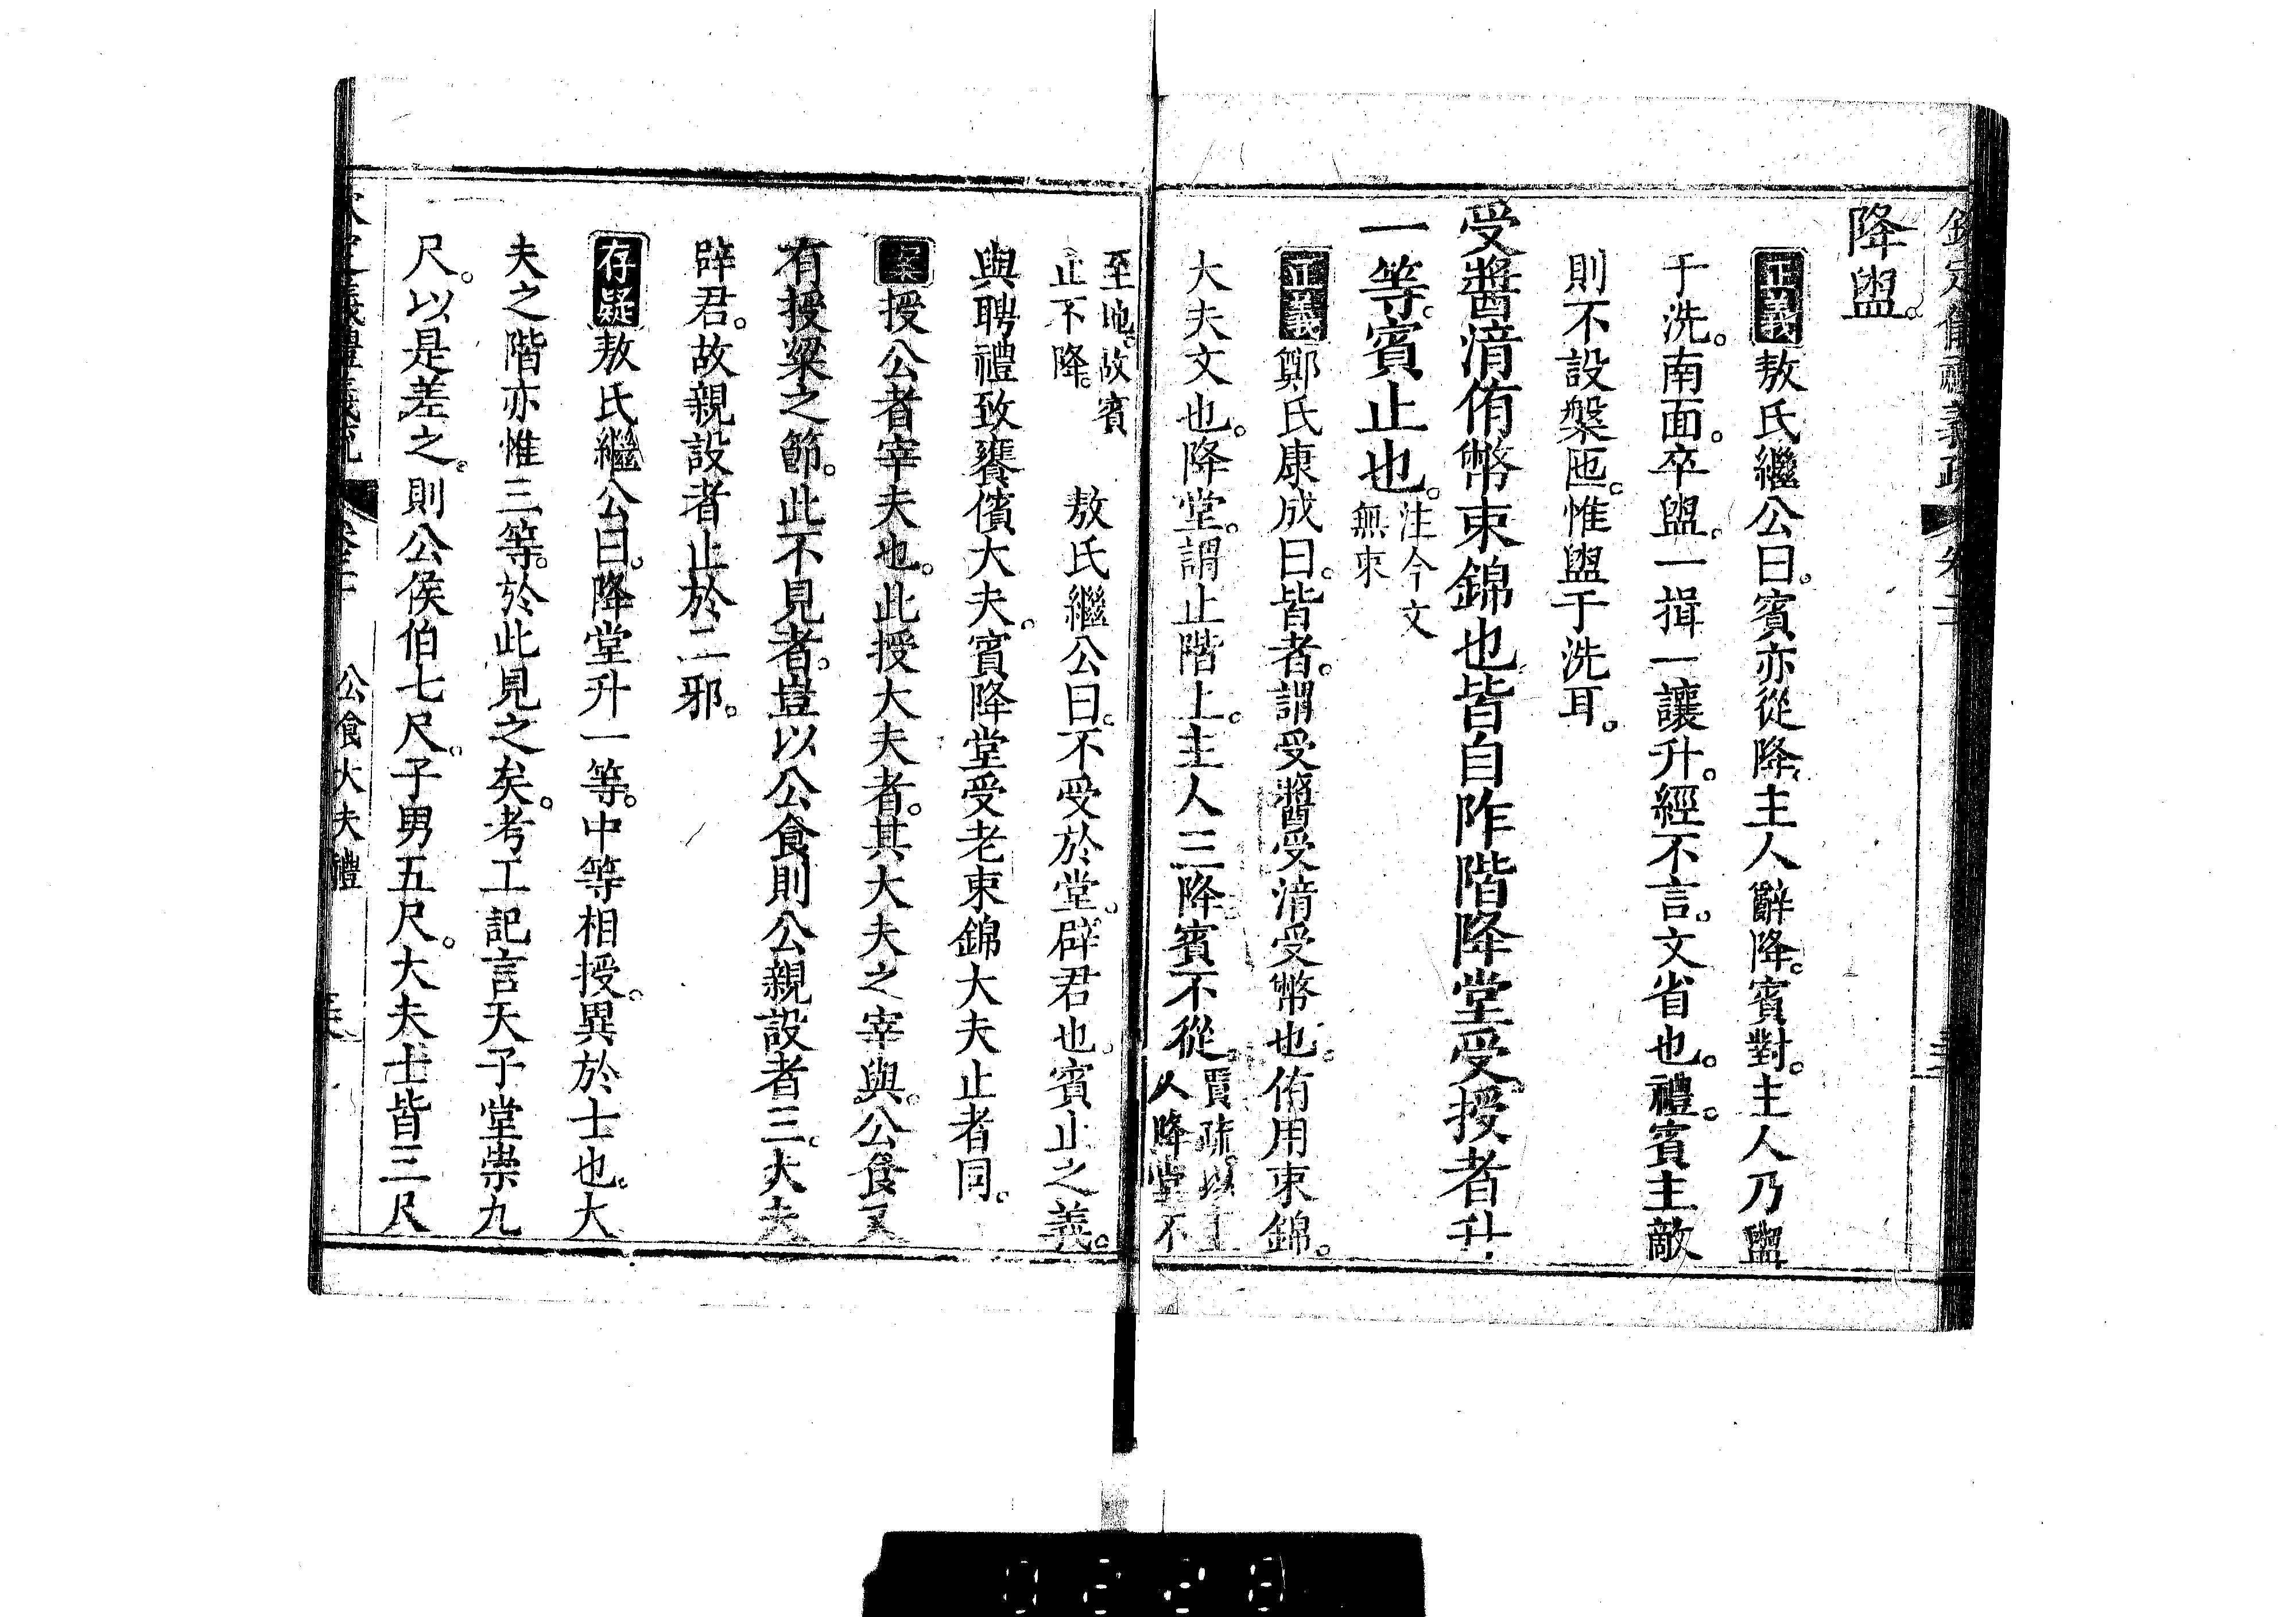 降盥。
正義敖氏繼公曰。賓亦從降。主人辭降。賓對。主人乃盥
于洗。南面。卒盥。一揖一讓升。經不言。文省也。禮。賓主敵
則不設槃匜。惟盥于洗耳。
受醬湆侑幣束錦也皆自阼階降堂受。授者升
一等。賓止也。注今文無束
正義鄭氏康成曰。皆者。謂受醬受湆受幣也。侑用束錦。
大夫文也。降堂。謂止階上。主人三降。賓不從。賈疏。以主人降堂不
至地。故賓止不降。 敖氏繼公曰。不受於堂。辟君也。賓止之義。
與聘禮致饔儐大夫。賓降堂受老束錦大夫止者同。
案授公者宰夫也。此授大夫者。其大夫之宰與。公食又
有授粱之節。此不見者。豈以公食則公親設者三。大夫
辟君。故親設者止於二邪。
存疑敖氏繼公曰。降堂升一等。中等相授。異於士也。大
夫之階亦惟三等。於此見之矣。考工記言天子堂崇九
尺。以是差之。則公侯伯七尺。子男五尺。大夫士皆三尺
公食大夫禮